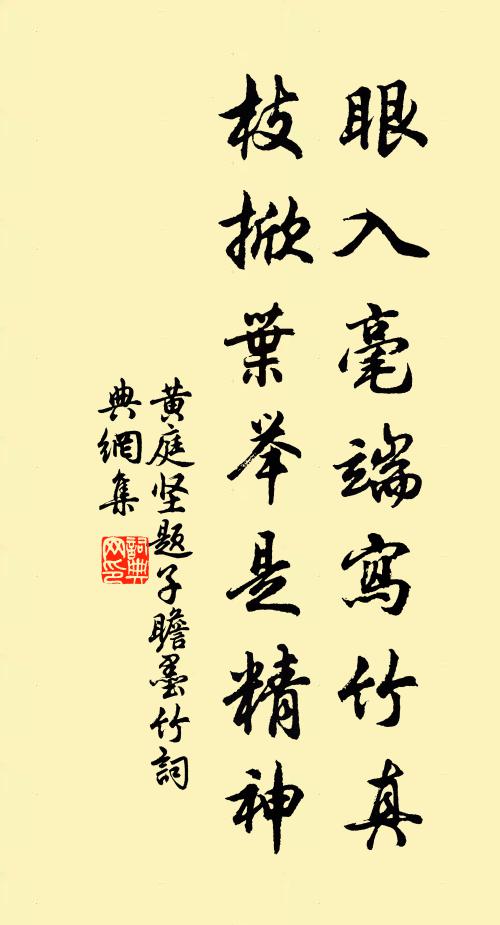 眼入毫端寫竹真
枝掀葉举是精神
黄庭坚题子瞻墨竹詞
典網集
詞典
网印